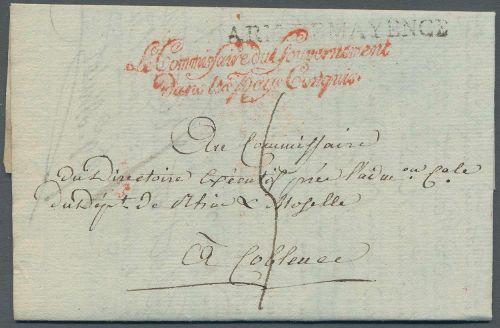 ARM. DE MAYENCE
Le Commissaire du Gouvernement
dans les Pays Conquis.
Au Commissaire
du Directoire exécutif près l'adm.on C.ale
du Dép.t de Rhin & Moselle
à Coblence
5